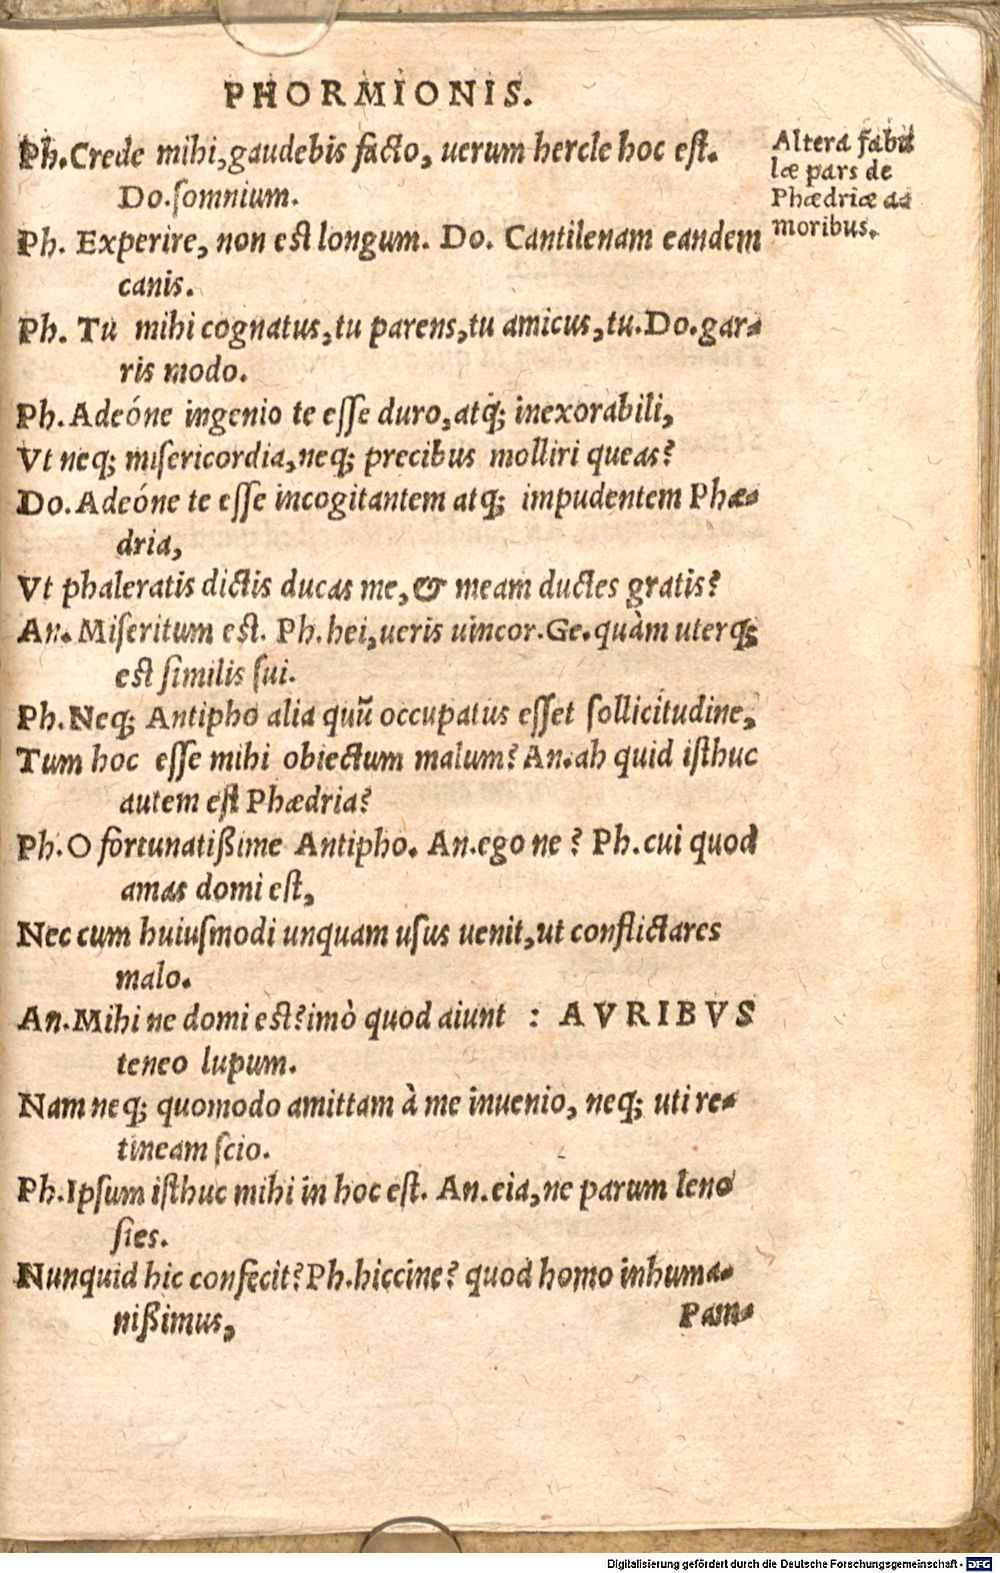 PHORMIONIS.
Ph. Crede mihi, gaudebis facto, uerum hercle hoc est.
Do. somnium.
Ph. Experire, non est longum. Do. Cantilenam eandem
canis.
Ph. Tu mihi cognatus, tu parens, tu amicus, tu. Do. gar-
ris modo.
Ph. Adeóne ingenio te esse duro, atq; inexorabili,
Vt neq; misericordia, neq; precibus molliri queas?
Do. Adeóne te esse incogitantem atq; impudentem Phæ-
dria,
Vt phaleratis dictis ducas me, & meam ductes gratis?
An. Miseritum est. Ph. hei, ueris uincor. Ge. quàm uterq;
est similis sui.
Ph. Neq; Antipho alia quũ occupatus esset sollicitudine,
Tum hoc esse mihi obiectum malum? An. ah quid isthuc
autem est Phædria?
Ph. O fortunatißime Antipho. An. ego ne? Ph. cui quod
amas domi est,
Nec cum huiusmodi unquam usus uenit, ut conflictares
malo.
An. Mihi ne domi est? imò quod aiunt : AVRIBVS
teneo lupum.
Nam neq; quomodo amittam à me inuenio, neq; uti re-
tineam scio.
Ph. Ipsum isthuc mihi in hoc est. An. eia, ne parum leno
sies.
Nunquid hic confecit? Ph. hiccine? quod homo inhuma-
nißimus,
Pam-
Altera fabu
læ pars de
Phædriæ a-
moribus.
Digitalisierung gefördert durch die Deutsche Forschungsgemeinschaft - DFG